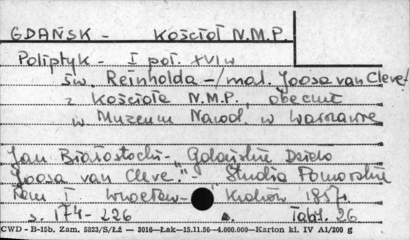 GDAŃSK - Kościół N.M.P.
Poliptyk - I poł. XVI w
św. Reinholda -/mal. Joosa van Cleve/
z Kościoła N.M.P., obecnie
w Muzeum Narod. w Warszawie
Jan Białostocki - "Gdańskie Dzieło
Joosa van Cleve." Studia Pomorskie
Tom I Wrocław - Kraków 1957r.
s. 174-226 Tabl. 26
CWD - B-15b. Zam. 5823/S/Łż — 3016—Łak—15.11.56—4.000.000—Karton kl. IV A1/200 g